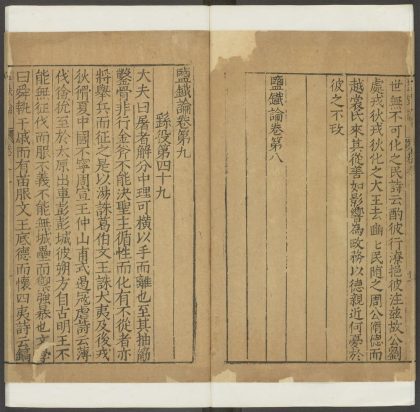 世無不可化之民詩云酌彼行潦挹彼注茲故公劉
處戎狄戎狄化之大王去豳〻民隨之周公脩德而
越裳氏來其從善如影響為政務以德親近何憂於
彼之不改
鹽鐵論卷第八
鹽鐵論卷第九
繇役第四十九
大夫曰屠者解分中理可橫以手而離也至其抽筋
鑿骨非行金斧不能決聖主循性而化有不從者亦
將舉兵而征之是以湯誅葛伯文王誅犬夷及後戎
狄猾夏中國不寧周宣王仲山甫式遏寇虐詩云薄
伐獫狁至於太原出車彭彭城彼朔方自古明王不
能無征伐而服不義不能無城壘而禦強暴也文學
曰舜執干戚而有苗服文王底德而懷四夷詩云鎬